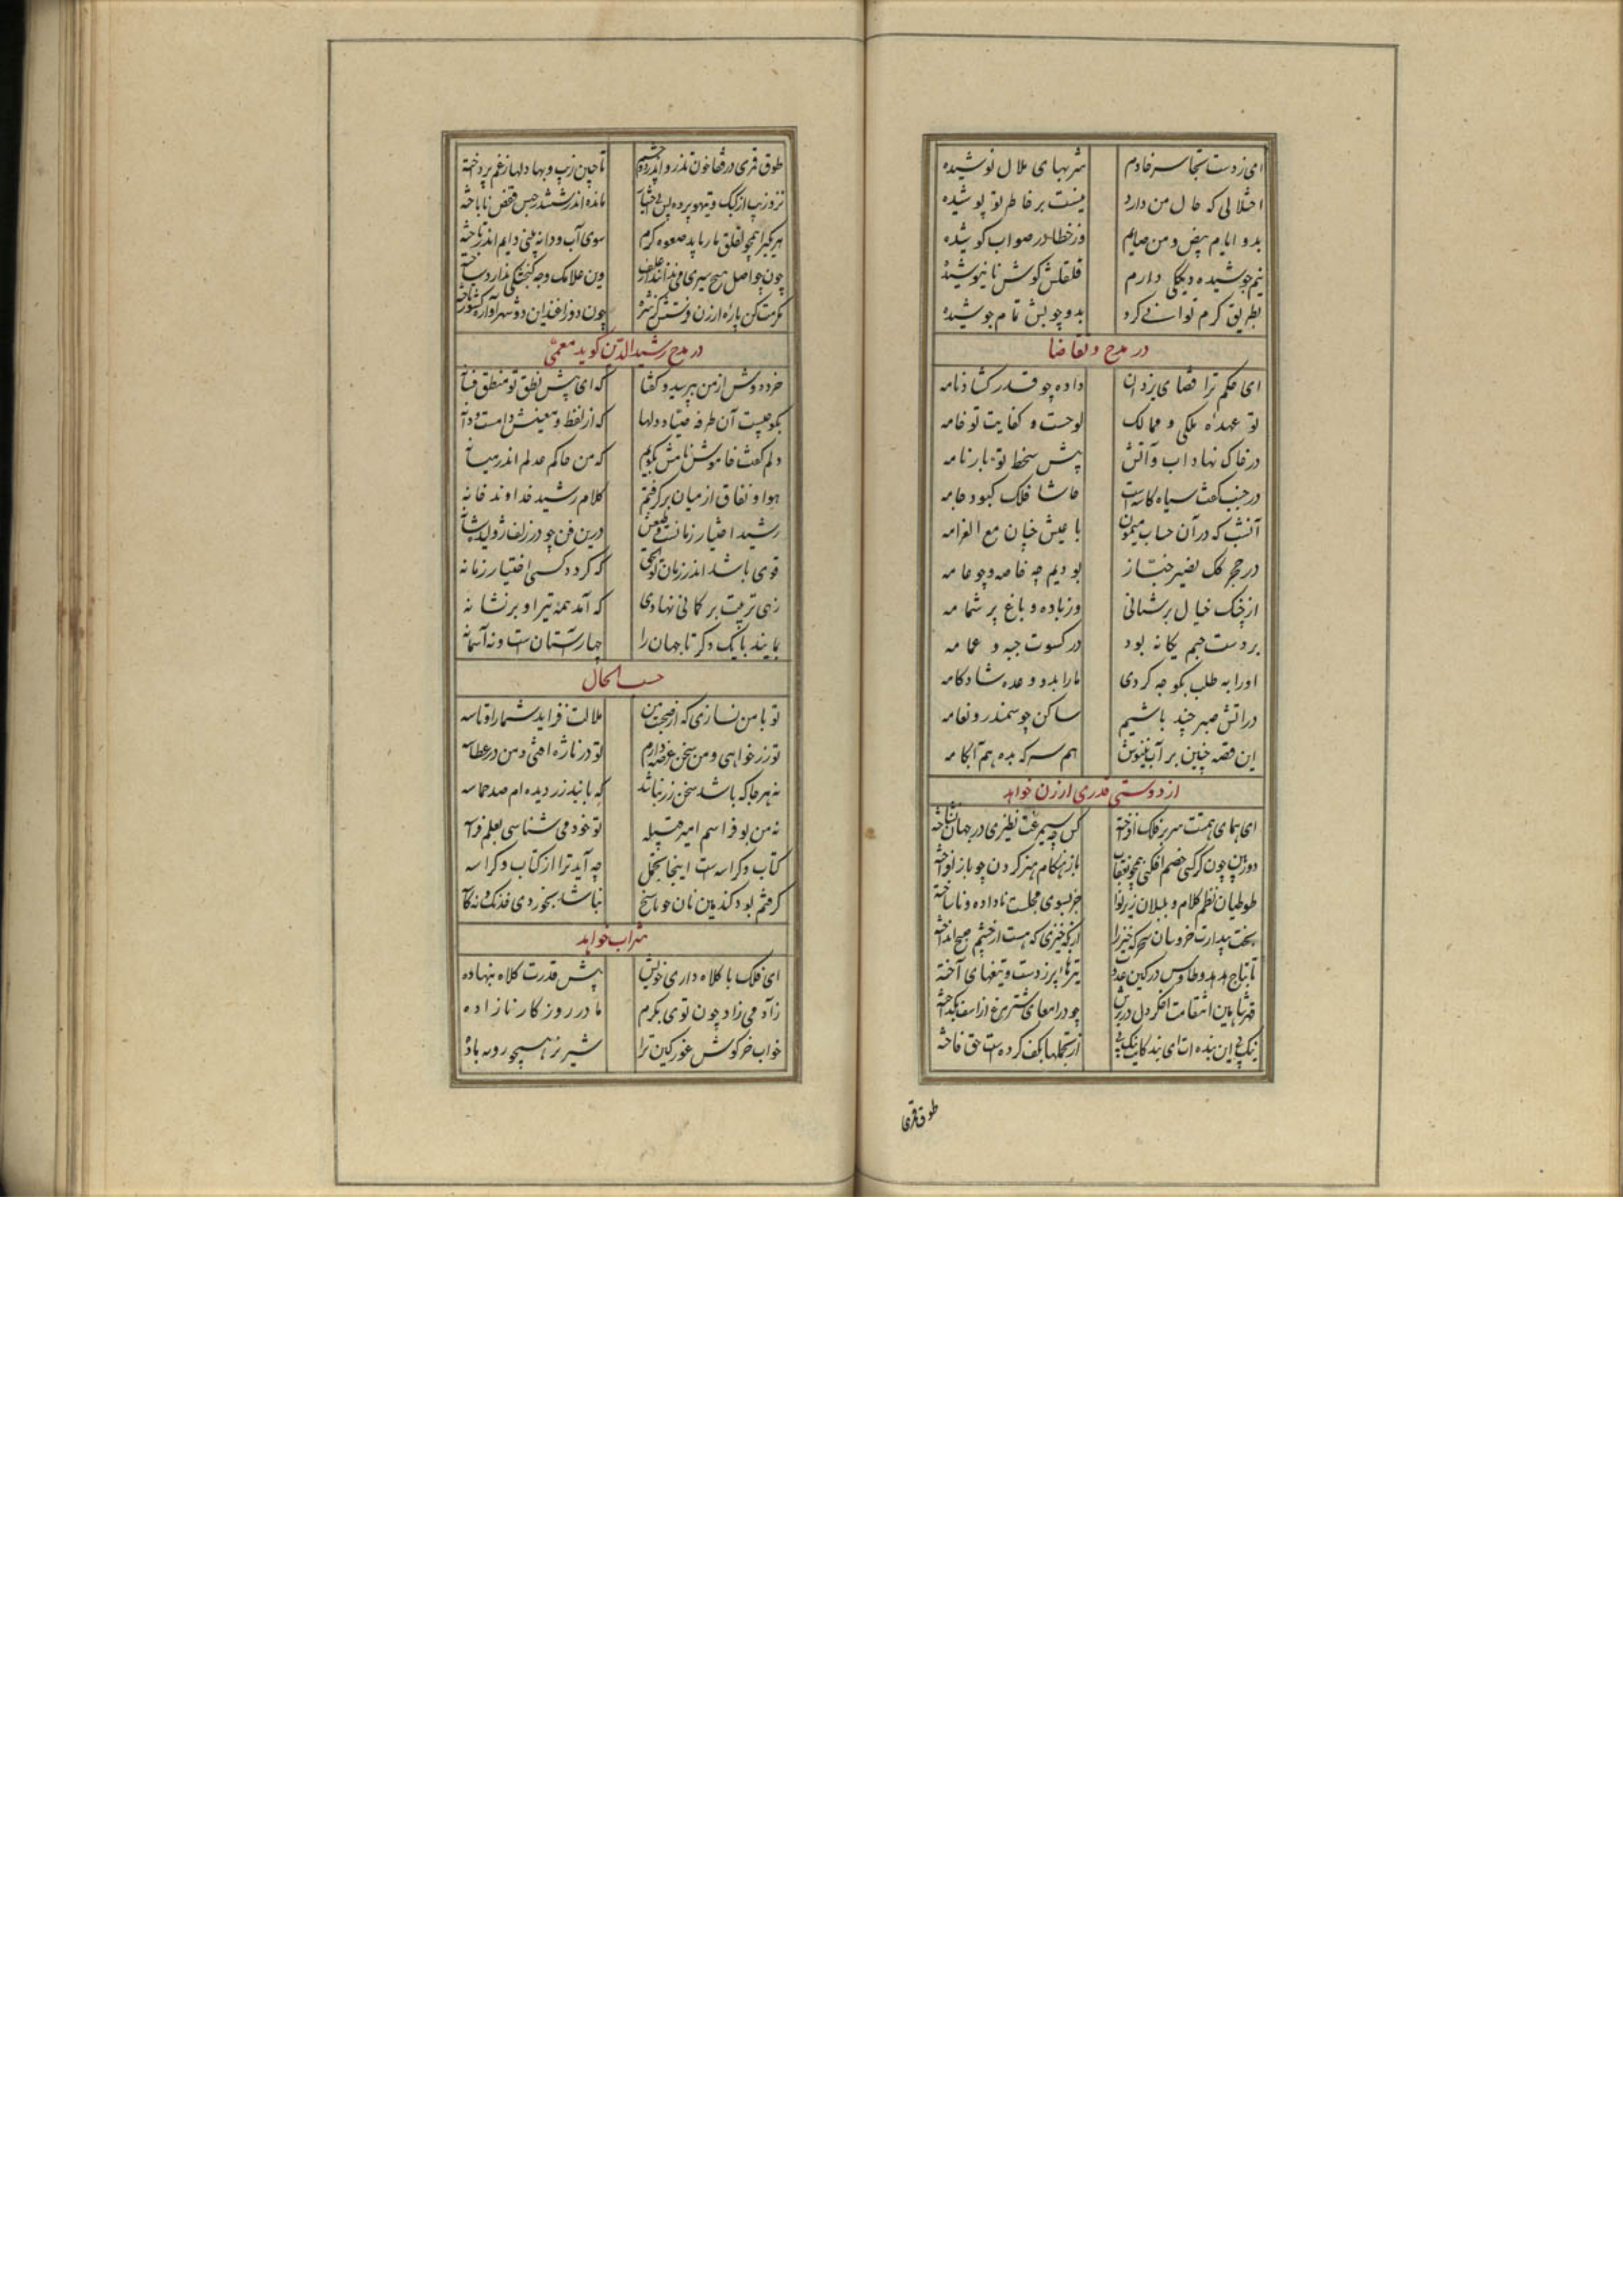 ای زدست تو تجاسر خادم شربهای ملال نوشیده
اختلالی که حال من دارد نیست بر خاطر تو پوشیده
بدو ایام بیض و من صایم وز خطا در صواب کوشیده
نیم جوشیده دیگکی دارم قلقلش گوش نانیوشیده
بطریق کرم توانی کرد بدو چوبش تمام جوشیده
در مدح و تقاضا
ای حکم ترا قضای یزدان داده چو قدر گشادنامه
تو عهده ملکی و ممالک لوحست و کفایت تو خامه
در خاک نهاد آب و آتش پیش سخط تو بارنامه
در جنب کفت سیاه کاسه است حاشا فلک کبود جامه
آنشب که در آن حساب میمون با عیش چنان مع الغرامه
در حجرگک نصیر خباز بودیم چه خاصه و چو عامه
از چنگ خیال پرنشانی وز باده دماغ پر شمامه
بر دست حجم یگانه بود در کسوت جبه و عمامه
او را به طلب بگو چه کردی ما را بدو وعده شادکامه
در آتش صبر چند باشیم ساکن چو سمندر و نعامه
این قصه چنین بر آب منویس هم سرکه بده هم آبکامه
از دوستی قدری ارزن خواهد
ای همای همتت سر بر فلک افراخته کس چو سیمرغت نظیری در جهان نشناخته
دوربین چون کرکسی خصم افکنی همچو عقاب باز هنگام هنر گردن چو باز افراخته
طوطیان نظم کلام و بلبلان زیر نوا جز بسوی مجلست ناداده و ناساخته
بخت بیدارت خروسان سحرگه خیز را از بگه خیزی که هست از چشم صبح انداخته
تا بتاج هدهد و طاوس در کین عدوت تیرها پر ز دست و تیغهای آخته
قهر شاهین انتقامت اخگر دل در برش چو در امعای شترمرغ از اسف بگداخته
نیک پی این بنده ات ای بندگانت نیک پی از تنکلها بکف کرده ست حق فاخته
طوق قمری
طوق قمری در قفا خون تذرو اندر دو چشم تا چنین زیب و بها دلها ز غم پرداخته
نرد زیب از کبک و تیهو برده پس بی اختیار مانده اندر ششدر حبس قفص ناباخته
هر یکی را همچو لقلق مار باید صعوه کرم سوی آب و دانه بینی دایم اندر تاخته
چون حواصل هیچ سیری می ندانند از علف وین غلامک وجه گنجشکی ندارد ساخته
مکرمت کن پاره ارزن فرستش گر نشد چون دو زاغند این دو شهر آواره کشور تاخته
در مدح رشید الدین گوید معمی
خرد دوش از من بپرسید و گفتا که ای پیش نطق تو منطق فسانه
بگو چیست آن طرفه صیاد دلها که از لفظ و معنیش دامست و دانه
دلم گفت خاموش تا منش بگویم که من حاکم عدلم اندر میانه
هوا و نفاق از میان برگرفتم کلام رشید خداوند خانه
رشید اختیار زمانست و طبعش درین فن چو در زلف ژولیده شانه
قوی باشد اندر زمان تو الحق که گردد کسی اختیار زمانه
زهی تربیت بر کمانی نهادی که آمد همه تیر او بر نشانه
بماند بایک دگر تا جهان را چهار آستان ست و نه آستانه
حسب الحال
تو با من نسازی که از صحبت من ملالت فزاید شما را و تاسه
تو زر خواهی و من سخن عرضه دارم تو در نازژه افتی و من در عطاسه
نه هر جا که باشد سخن زر نباشد که با نیدزر دیده ام صد حماسه
نه من بوفراسم امیر قبیله تو خود می شناسی بعلم فراسه
چه آید ترا از کتاب و کراسه کتاب و کراسه ست اینجا تجمل
گرفتم بود گندمین نان حواسخ نباشد بخوردی فذلک نه کاسه
شراب خواهد
ای فلک با کلاه داری خویش پیش قدرت کلاه بنهاده
زاده می زاد چون توی بکرم مادر روزگار نازاده
خواب خرگوش غور کین ترا شیر نر همچو روبه ماده